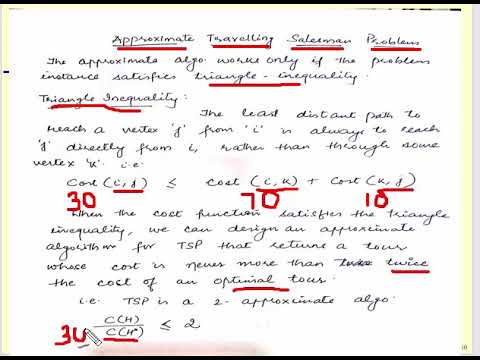 Approximate Travelling Salesman Problem
The approximate algo. works only if the problem
instance satisfies triangle-inequality.
Triangle Inequality:
The least distant path to
reach a vertex 'j' from 'i' is always to reach
'j' directly from i, rather than through some
vertex 'k' i.e.
Cost (i, j) ≤ Cost (i, k) + Cost (k, j)
30 70 10
When the cost function satisfies the triangle
inequality, we can design an approximate
algorithm for TSP that returns a tour
whose cost is never more than twice
the cost of an optimal tour.
i.e. TSP is a 2-approximate algo.
C(H)
C(H*) ≤ 2